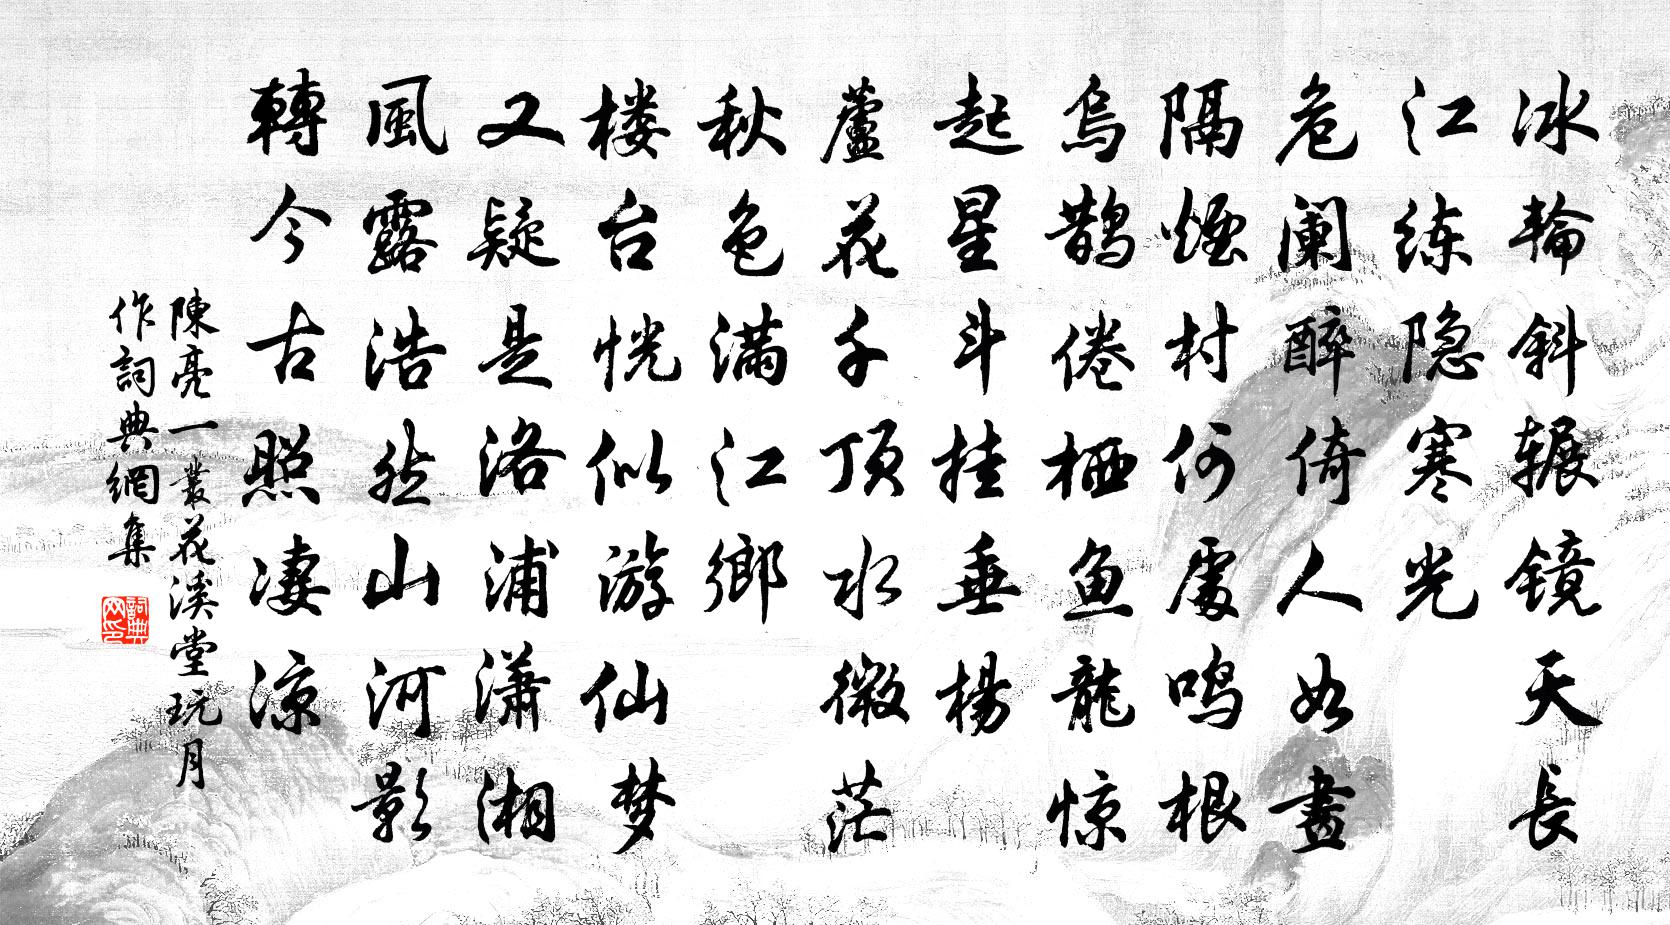 冰輪斜辗镜天長
江练隐寒光
危阑醉倚人如畫
隔煙村何處鸣根
烏鹊倦栖鱼龍惊
起星斗挂垂楊
蘆花千顶水微茫
秋色滿江鄉
楼台恍似游仙梦
又疑是洛浦潇湘
風露浩然山河影
轉今古照淒涼
陳亮一叢花溪堂玩月
作詞典網集
詞典网印